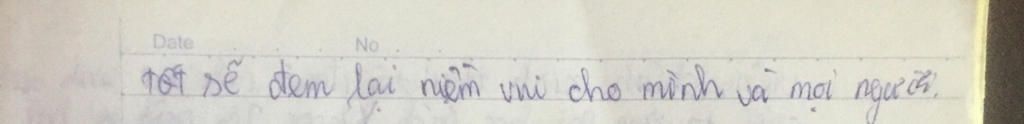 Date No
tốt sẽ đem lại niềm vui cho mình và mọi người.